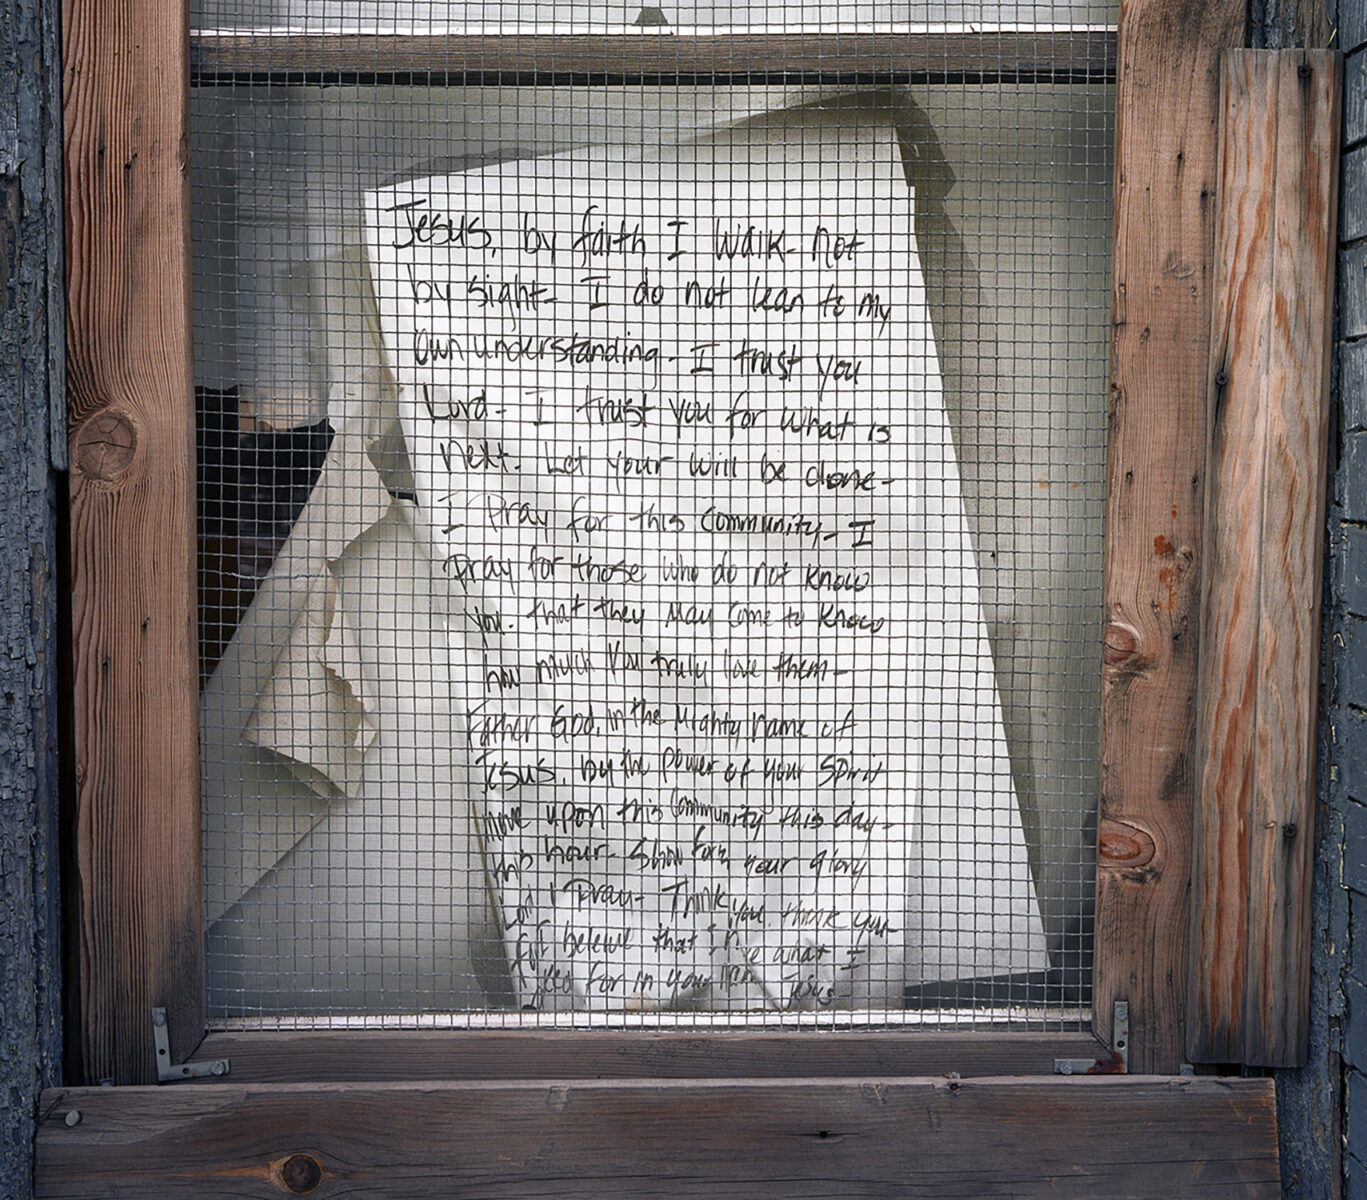 Jesus, by faith I walk - not
by sight - I do not lean to my
own understanding - I trust you
Lord - I trust you for what is
next. Let your will be done -
I Pray for this Community - I
Pray for those who do not know
you. that they may come to know
how much you truly love them -
Father God, in the Mighty name of
Jesus, by the Power of your Spirit
move upon this Community this day -
this hour - Show forth your glory
Lord I Pray - Thank you. thank you
I beleive that what I
for in your name Jesus -